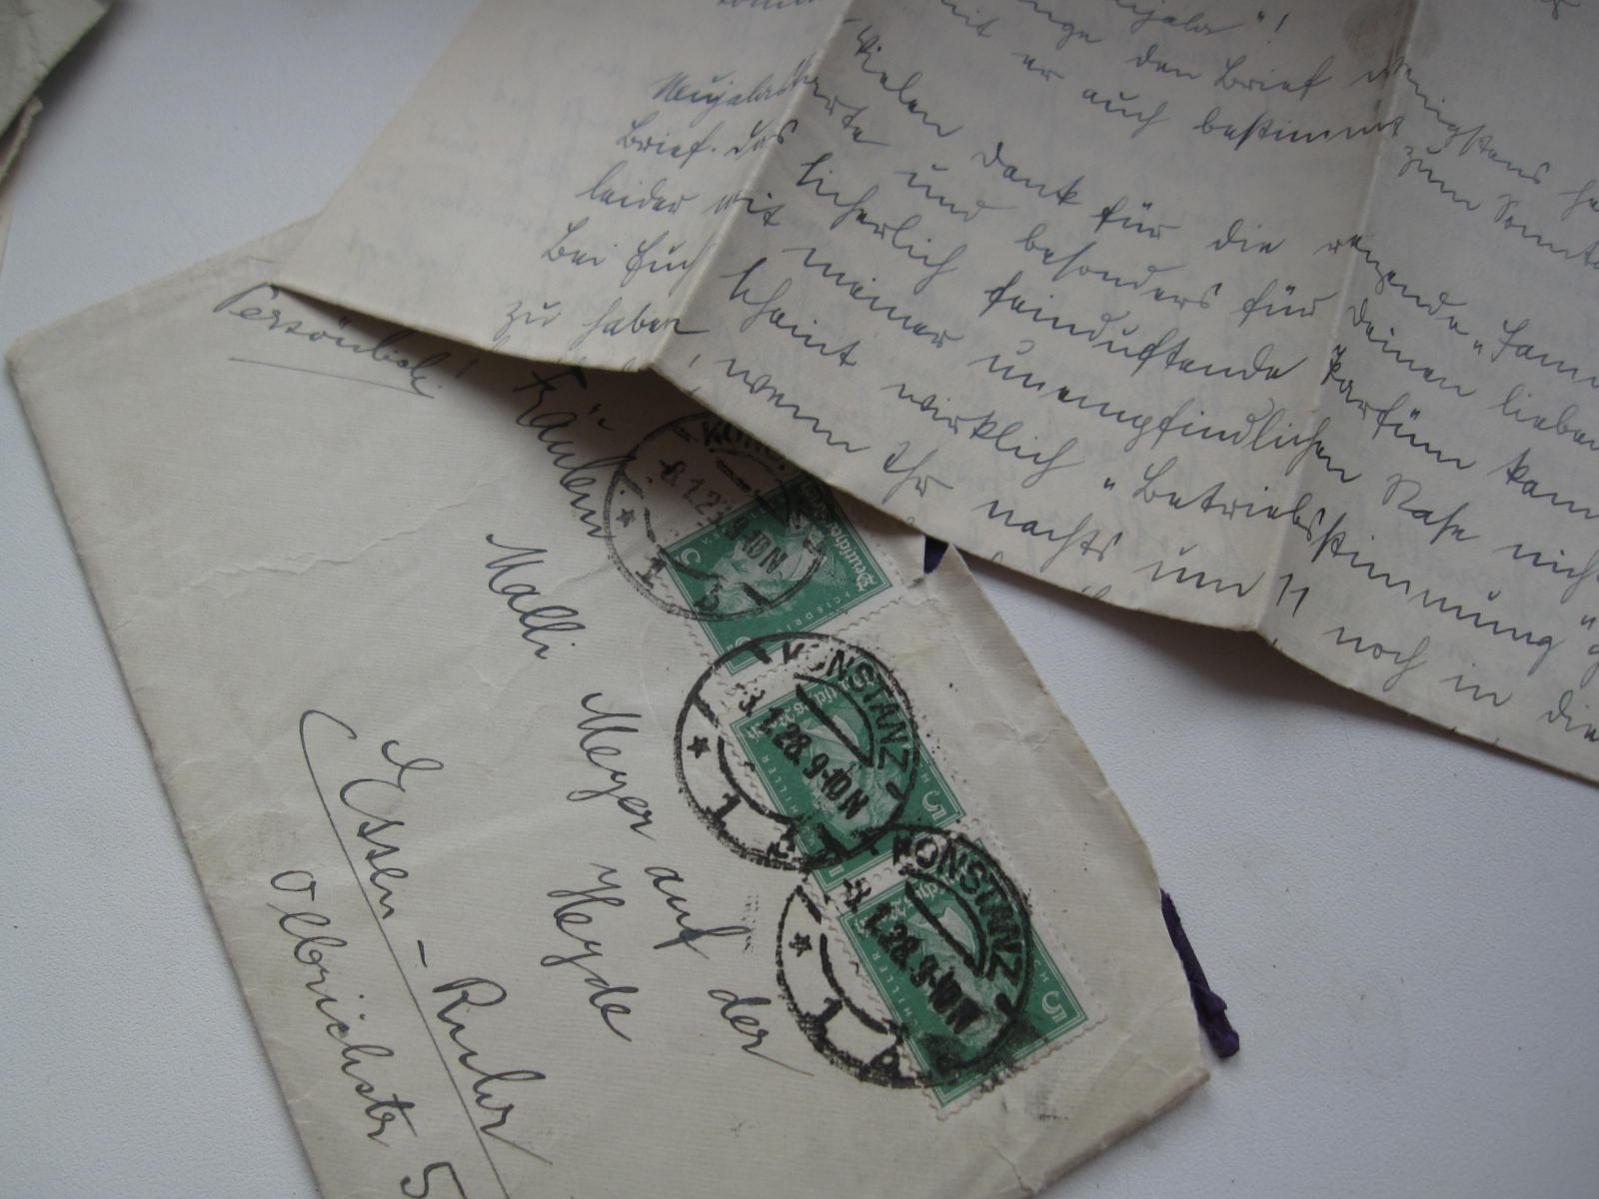 Neujahrs
Brief. Das
leider mit
bei Euch
zu haben
den Brief wenigstens
er auch bestimmt zum Sonnta
Vielen Dank für die reizende "Fam
karte und besonders für Deinen lieben
sicherlich feinduftende Parfüm kann
meiner unempfindlichen Nase nich
scheint wirklich "Betriebsstimmung" g
wenn Ihr nachts um 11 noch in die
Persönlich!
Fräulein
Malli
Meyer auf der
Heyde
Essen-Ruhr
Olbrichstr 5
KONSTANZ
9-10N
1
Deutsche
FRIEDRI
5
KONSTANZ
3.1.28.9-10N
1
SCHILLER
5
KONSTANZ
3.1.28.9-10N
1
SCHILLER
5